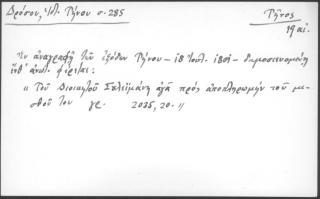 Δρόσου, Ἱστ. Τήνου σ. 285
Τῆνος
19 αἰ.
Ἐν ἀναγραφῇ τῶν ἐξόδων Τήνου - 18 Ἰουλ. 1801 - δημοσιευομένῃ
ὑπ' ἀνωτ. φέρεται:
« Τοῦ Διοικητοῦ Σουλεϊμάνη ἀγᾶ πρὸς ἀποπληρωμὴν τοῦ μι-
σθοῦ του γρ. 2035,20. »